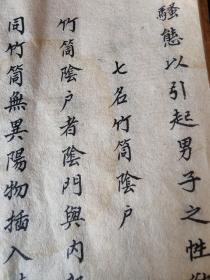 騷態以引起男子之性
七名竹筒陰户
竹筒陰户者陰門與内
同竹筒無異陽物插入